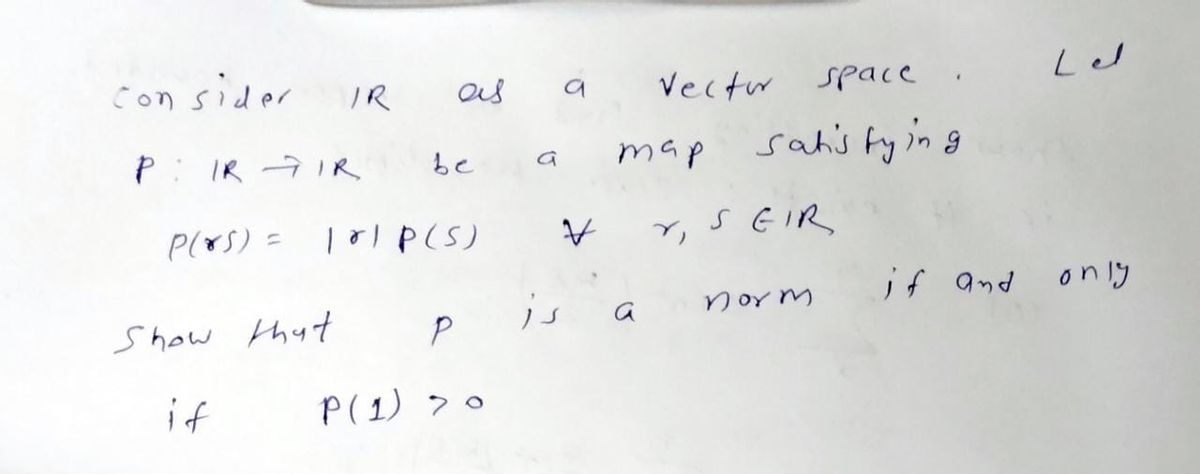 Consider IR as a Vector space. Let
P: IR → IR be a map satisfying
P(rs) = |r| P(s) ∀ r, s ∈ IR
Show that P is a norm if and only
if P(1) > 0